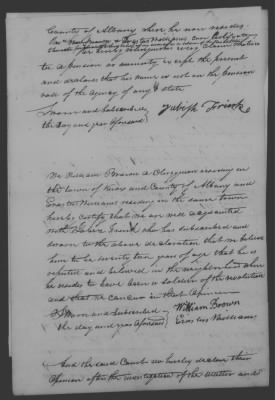 County of Albany where he now resides
he hereby relinquishes every claim whatever
to a pension or annuity except the present
and declares that his name is not on the pension
roll of the agency of any state
Sworn and Subscribed
the day and year aforesaid
We William Brown a Clergyman residing in
the town of and County of Albany and
Erastus Williams residing in the same town
hereby certify that we are well acquainted
with who has subscribed and
sworn to the above declaration that we believe
him to be seventy two years of age that he is
reputed and believed in the neighborhood where
he resides to have been a soldier of the revolution
and that we concur in that opinion
Sworn and Subscribed
the day and year aforesaid
William Brown
Erastus Williams
And the said Court do hereby declare their
opinion after the investigation of the matter and